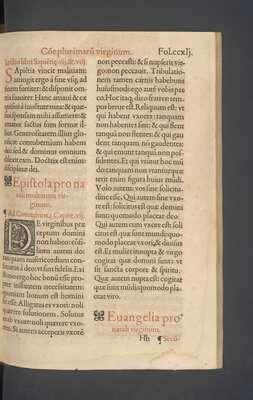 Cōe plurimarū virginum. Fo.ccxlj.
Lectio libri Sapiētie. vij. & viij.
Sapiētia vincit malitiam:
attingit ergo à fine vsq; ad
finem fortiter: & disponit om-
nia suauiter. Hanc amaui & ex
quisiui à iuuentute mea: & quæ-
siui sponsam mihi assumere: &
amator factus sum formæ il-
lius. Generositatem illius glo-
ficat contubernium habens
dei: sed & dominus omnium
dilexit eam. Doctrix est enim
disciplinæ dei.
Epistola pro na
tali multarum vir-
ginum.
Ad Corinthios. j. Capite. vij.
DE virginibus præ
ceptum domini
non habeo: cōsi-
lium autem do:
tanquam misericordiam con-
secutus à deo: vt sim fidelis. Exi
stimo ergo hoc bonum esse pro-
pter instantem necessitatem:
quoniam bonum est homini
sic esse. Alligatus es vxori: noli
quærere solutionem. Solutus
es ab vxore: noli quærere vxo-
rē. Si autem acceperis vxorē
non peccasti: & si nupserit vir-
go non peccauit. Tribulatio-
nem tamen carnis habebunt
huiusmodi: ego autē vobis par
co. Hoc itaq; dico fratres: tem-
pus breue est. Reliquum est: vt
qui habent vxores: tanquam
non habentes sint: & qui flent
tanquā non flentes: & qui gau
dent tanquam non gaudētes: &
qui emunt tanquā non possi-
dentes: Et qui vtuntur hoc mū-
do: tanquam non vtantur: præ-
terit enim figura huius mūdi.
Volo autem: vos sine solicitu-
dine esse. Qui sine vxore est:
solicitus est quæ domini sunt:
quomodo placeat deo.
Qui autem cum vxore est: soli
citus est quæ sunt mundi: quo-
modo placeat vxori: & diuisus
est. Et mulier innupta & virgo
cogitat quæ domini sunt: vt
sit sancta corpore & spiritu.
Quæ autem nupta est: cogitat
quæ sunt mundi: quomodo pla-
ceat viro.
Euangelia pro
natali virginum.
Hh Secū-